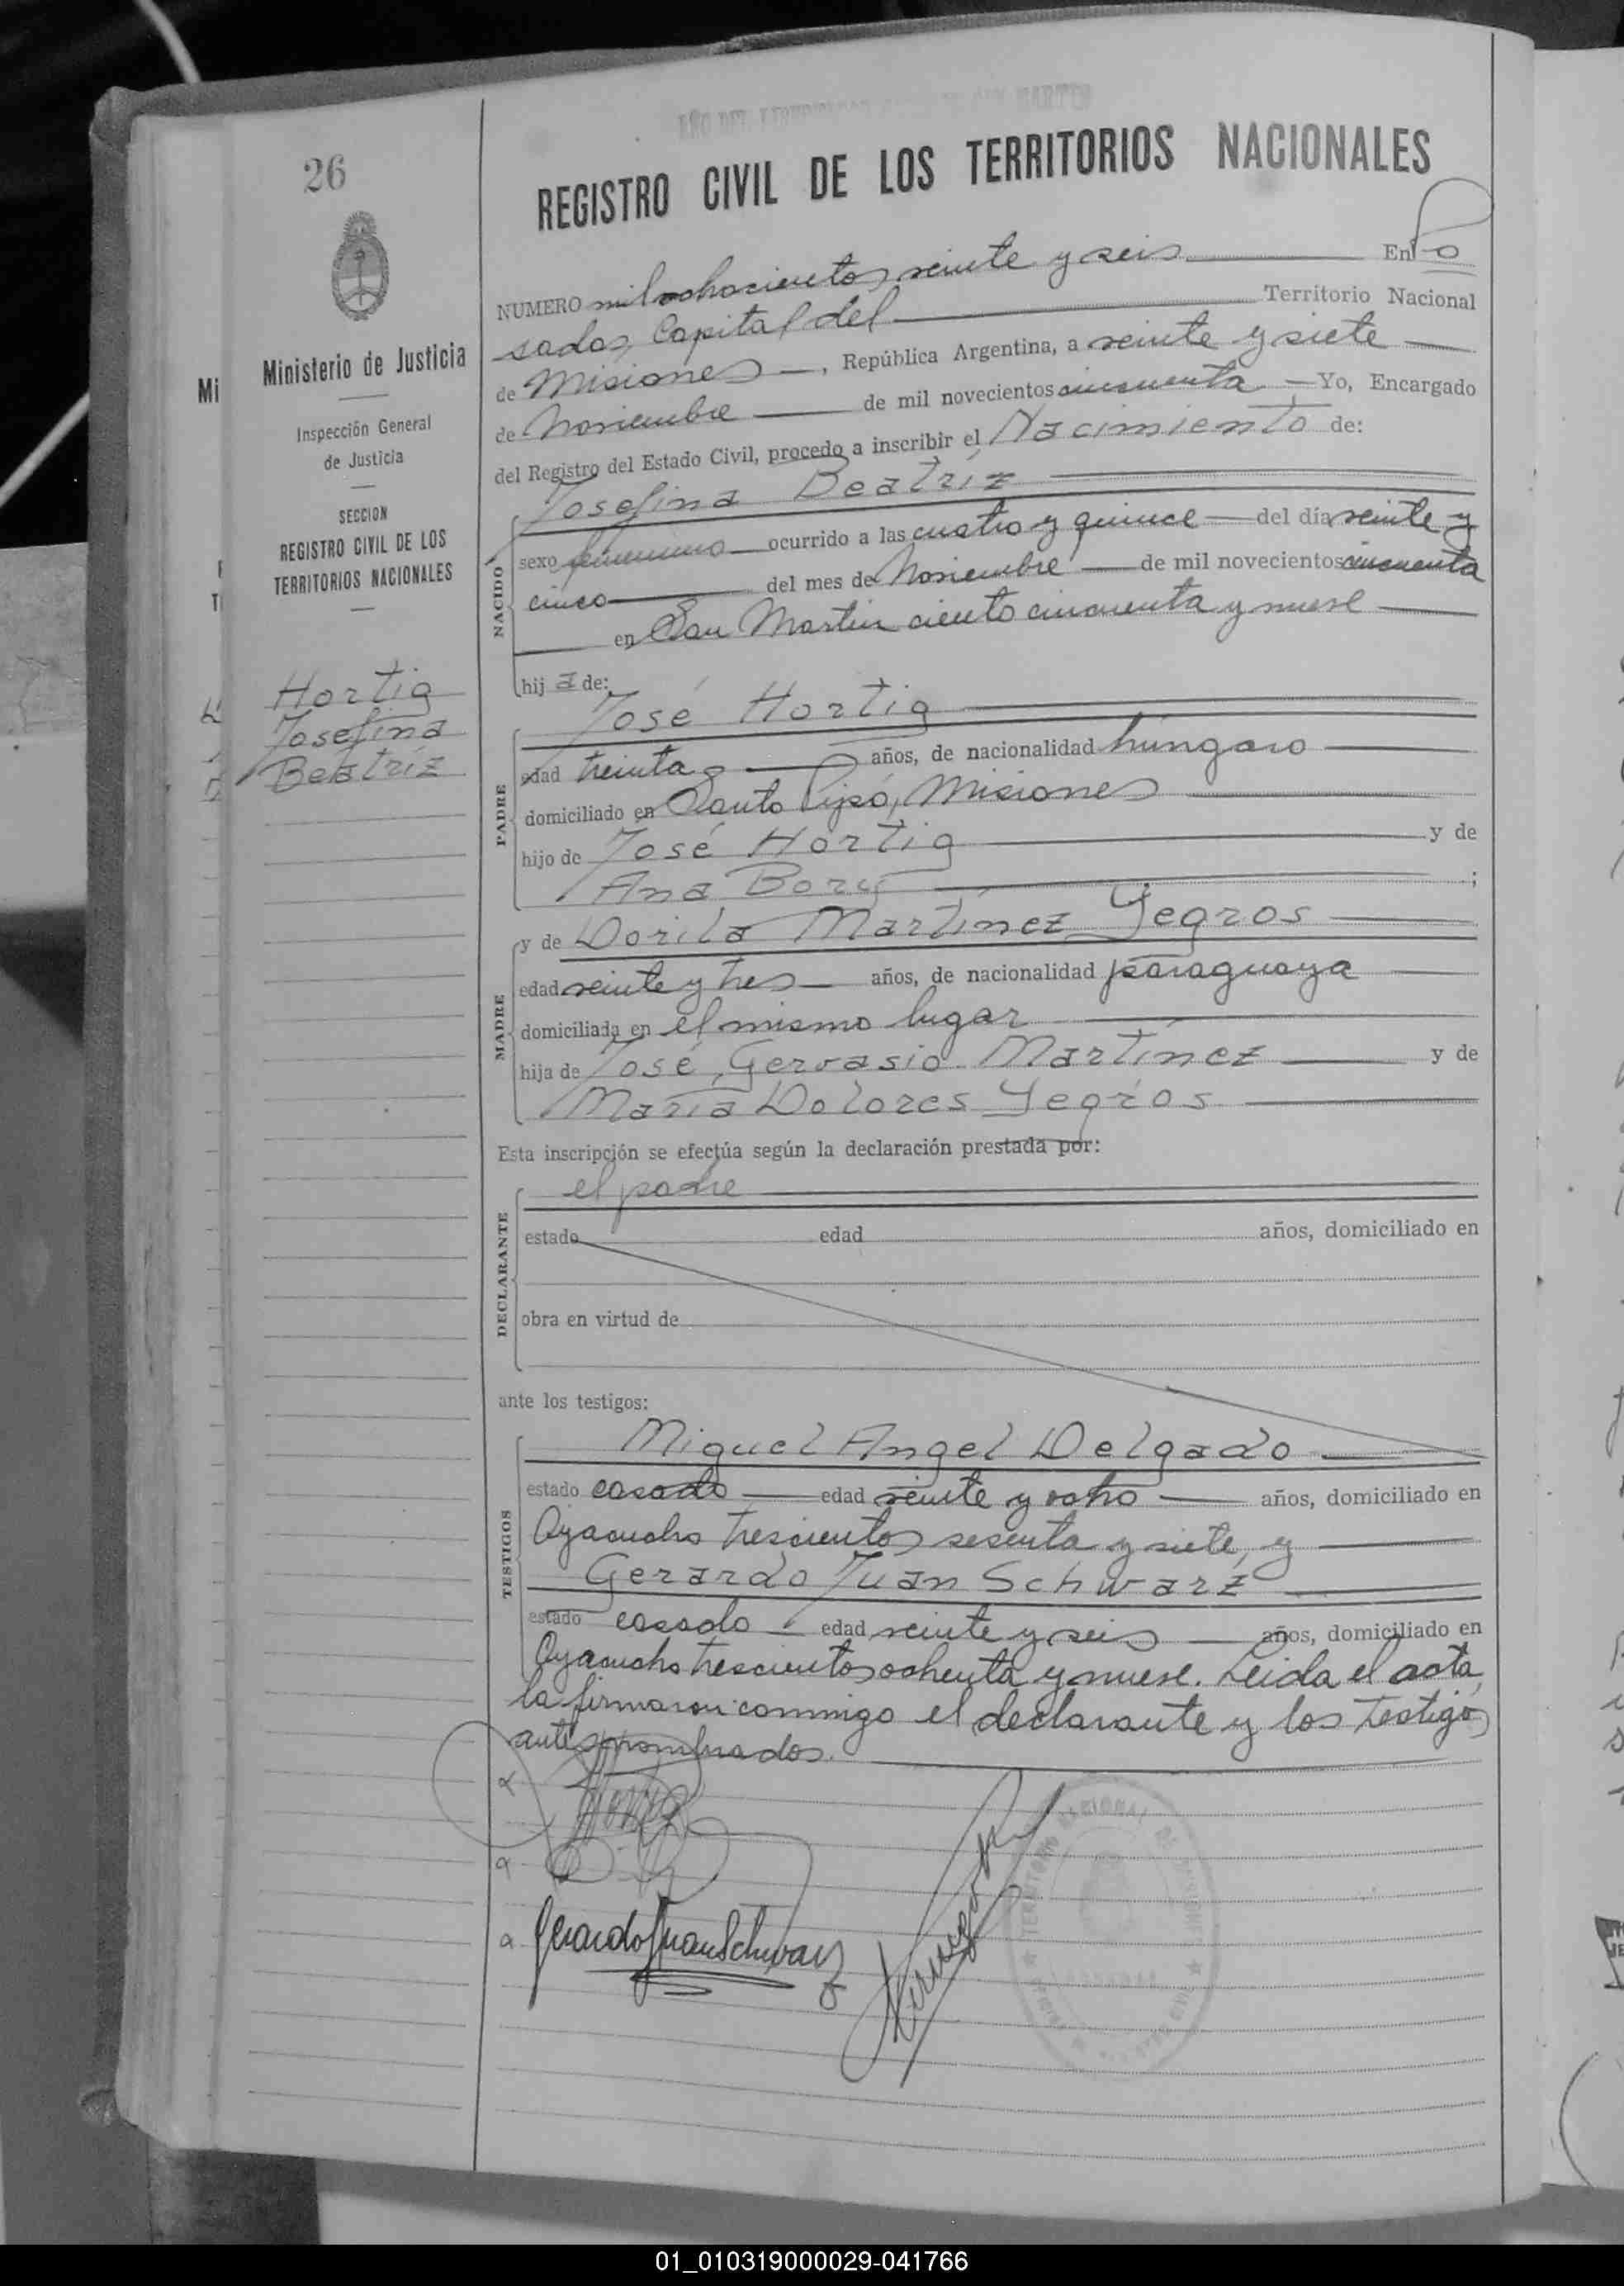 AÑO DEL LIBERTADOR SAN MARTIN
26
REGISTRO CIVIL DE LOS TERRITORIOS NACIONALES
Ministerio de Justicia
Inspección General
de Justicia
SECCION
REGISTRO CIVIL DE LOS
TERRITORIOS NACIONALES
Hortig
Josefina
Beatríz
NUMERO mil ochocientos veinte y seis En Po
sadas, Capital del Territorio Nacional
de Misiones, República Argentina, a veinte y siete
de Noviembre de mil novecientos cincuenta Yo, Encargado
del Registro del Estado Civil, procedo a inscribir el Nacimiento de:
NACIDO
Josefina Beatríz
sexo femenino ocurrido a las cuatro y quince del día veinte y
cinco del mes de Noviembre de mil novecientos cincuenta
en San Martin ciento cincuenta y nueve
hij a de:
PADRE
José Hortig
edad treinta años, de nacionalidad húngaro
domiciliado en Santo Pipó, Misiones
hijo de José Hortig y de
Ana Bory ;
MADRE
y de Dorila Martínez Yegros
edad veinte y tres años, de nacionalidad paraguaya
domiciliada en el mismo lugar
hija de José Gervasio Martínez y de
María Dolores Yegros
Esta inscripción se efectúa según la declaración prestada por:
DECLARANTE
el padre
estado edad años, domiciliado en
obra en virtud de
ante los testigos:
TESTIGOS
Miguel Angel Delgado
estado casado edad veinte y ocho años, domiciliado en
Ayacucho trescientos sesenta y siete, y
Gerardo Juan Schwarz
estado casado edad veinte y seis años, domiciliado en
Ayacucho trescientos ochenta y nueve. Leida el acta,
la firmaron conmigo el declarante y los testigos
antes nombrados.
Hortig
Gerardo Juan Schwarz
01_010319000029-041766